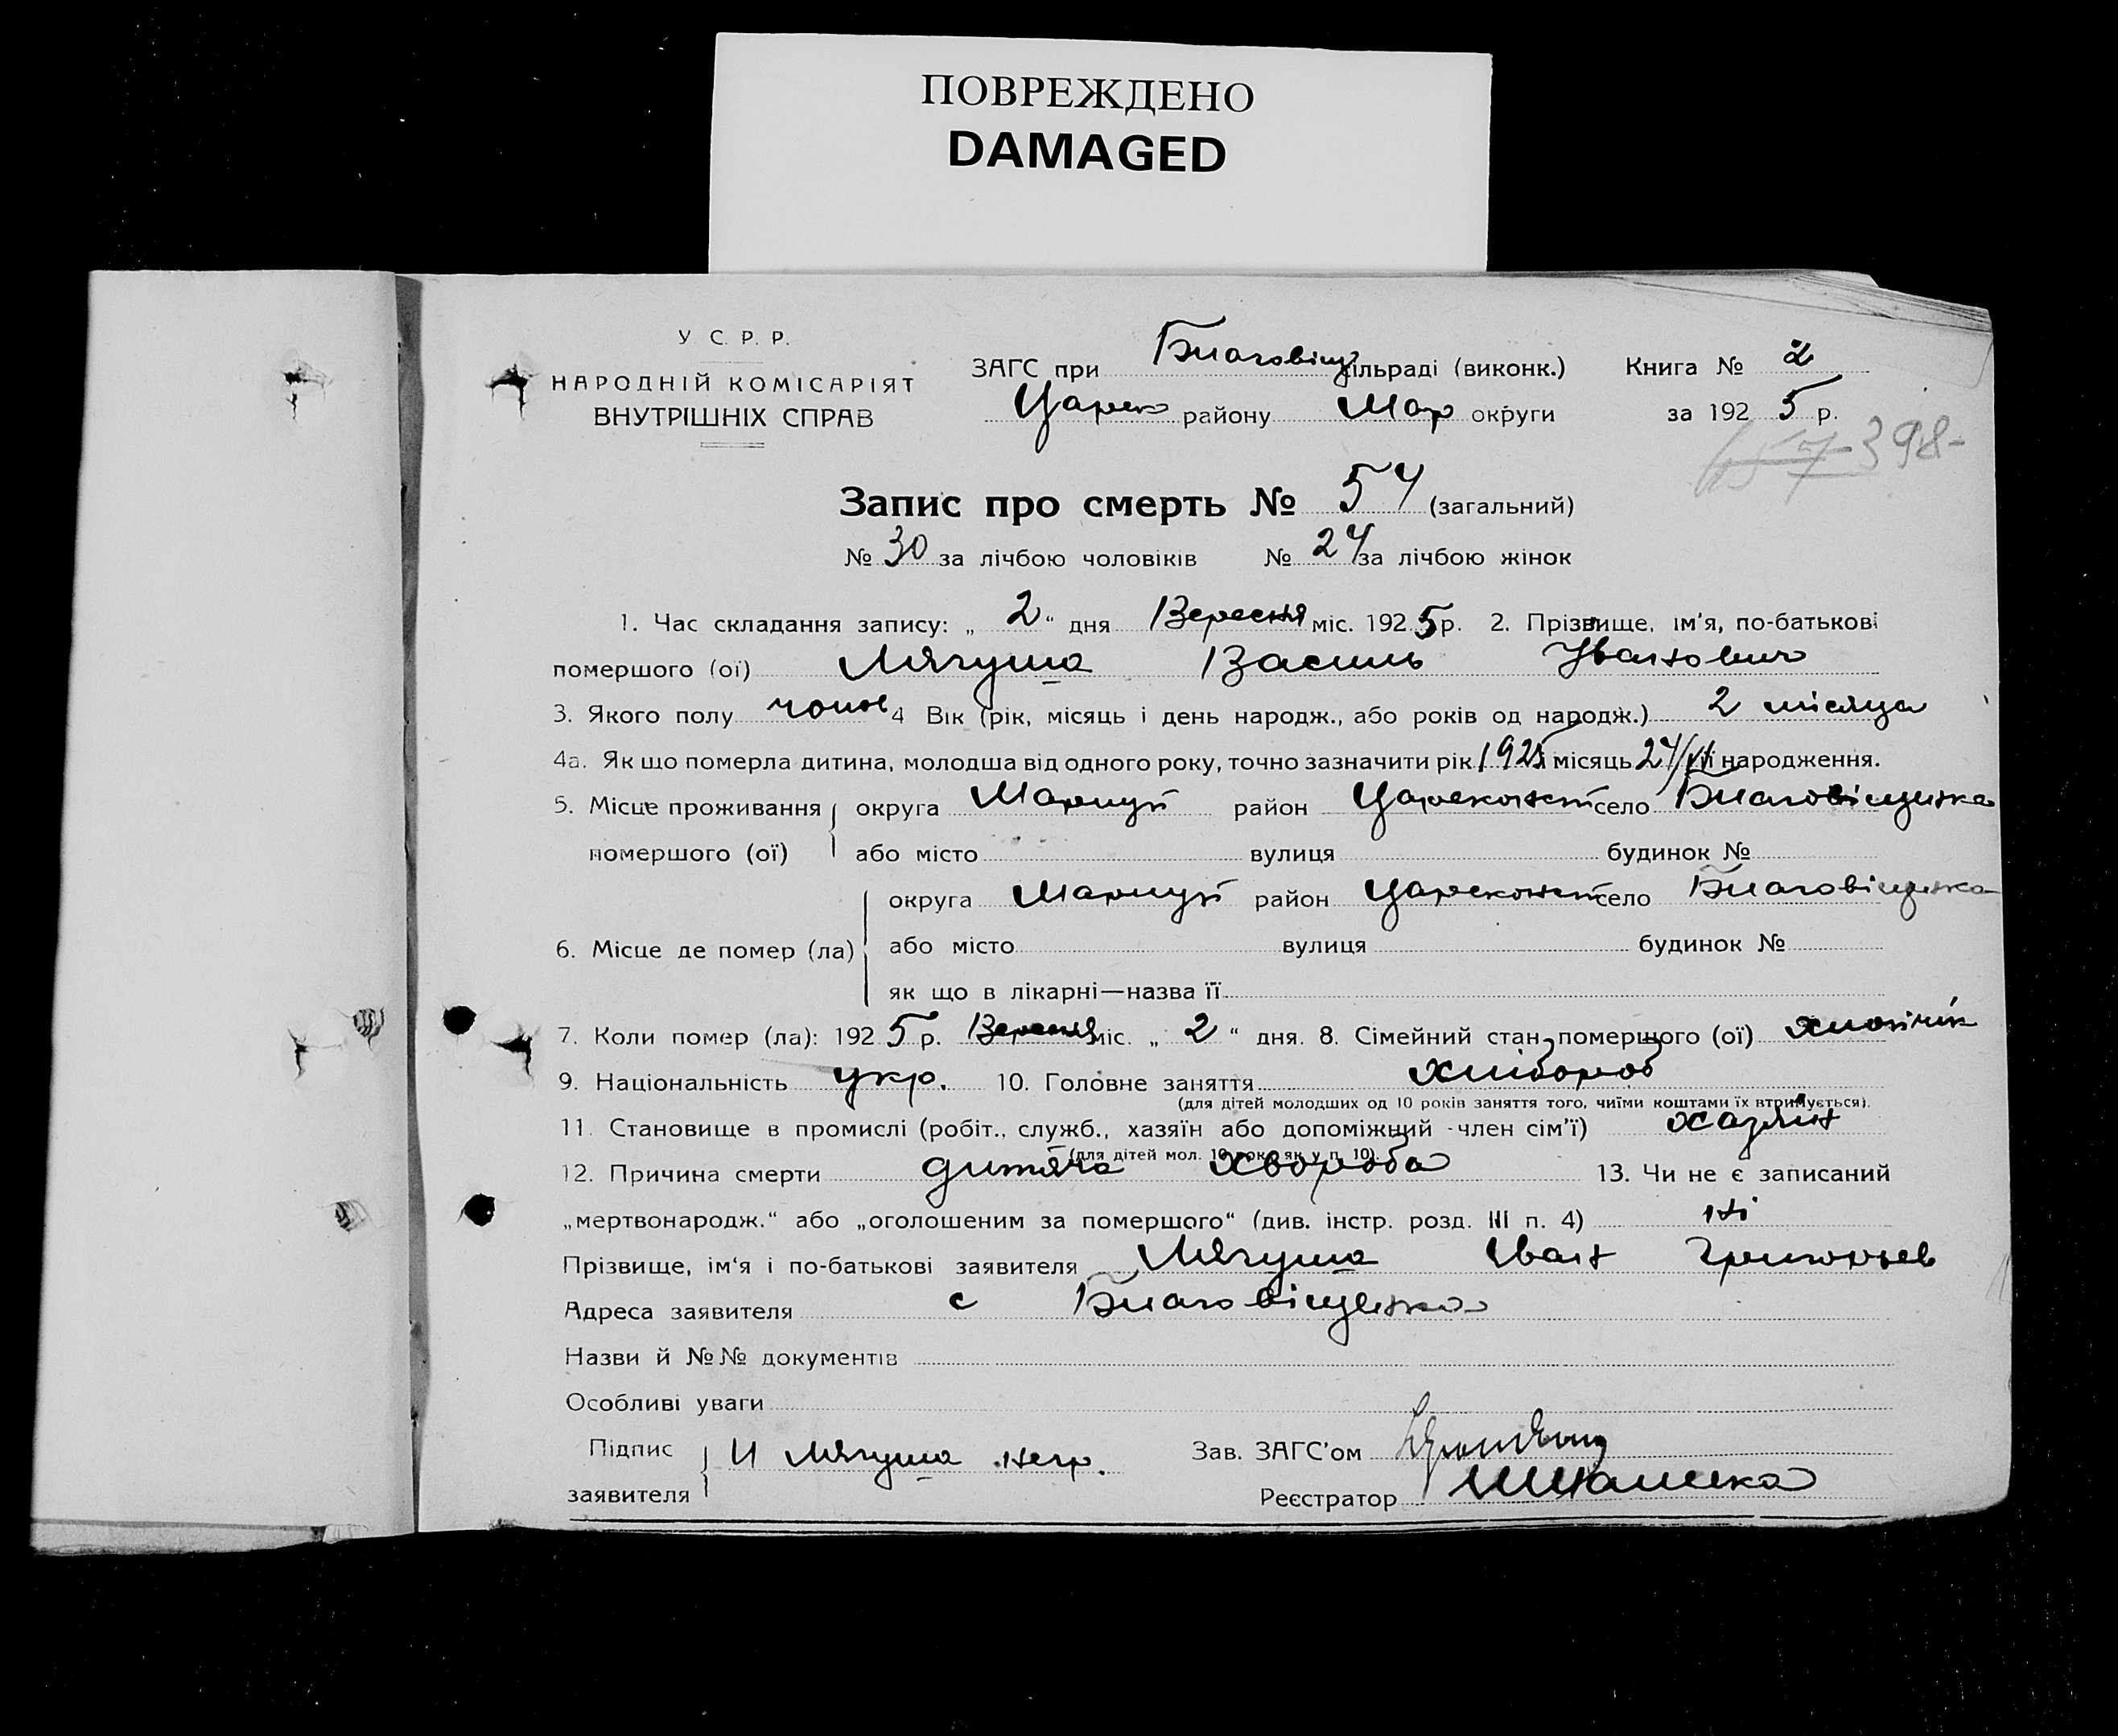 ПОВРЕЖДЕНО
DAMAGED
У С. Р. Р.
НАРОДНІЙ КОМІСАРІЯТ
ВНУТРІШНІХ СПРАВ
ЗАГС при Благовіщ сільраді (виконк.) Книга № 2
Царек району Мар округи за 1925 р.
657 398-
Запис про смерть № 54 (загальний)
№ 30 за лічбою чоловіків № 24 за лічбою жінок
1. Час складання запису: „ 2 “ дня Вересня міс. 1925 р. 2. Прізвище, ім'я, по-батькові
помершого (ої) Лягуша Василь Іванович
3. Якого полу чолов 4 Вік (рік, місяць і день народж., або років од народж.) 2 місяца
4а. Як що померла дитина, молодша від одного року, точно зазначити рік 1925 місяць 24/VI її народження.
5. Місце проживання округа Маріуп район Цареконст село Благовіщенка
помершого (ої) або місто вулиця будинок №
округа Маріуп район Цареконст село Благовіщенка
6. Місце де помер (ла) або місто вулиця будинок №
як що в лікарні—назва її
7. Коли помер (ла): 1925 р. Вересня міс. „ 2 “ дня. 8. Сімейний стан помершого (ої) хлопчик
9. Національність укр. 10. Головне заняття хлібороб
(для дітей молодших од 10 років заняття того, чиїми коштами їх втримується).
11. Становище в промислі (робіт., служб., хазяїн або допоміжний -член сім'ї) хазяїн
(для дітей мол. 10 рок. як у п. 10).
12. Причина смерти дитяча хвороба 13. Чи не є записаний
„мертвонародж.“ або „оголошеним за помершого“ (див. інстр. розд. III п. 4) ні
Прізвище, ім'я і по-батькові заявителя Лягуша Іван Григорьев
Адреса заявителя с Благовіщенка
Назви й №№ документів
Особливі уваги
Підпис И Лягуша негр. Зав. ЗАГС'ом
заявителя Реєстратор